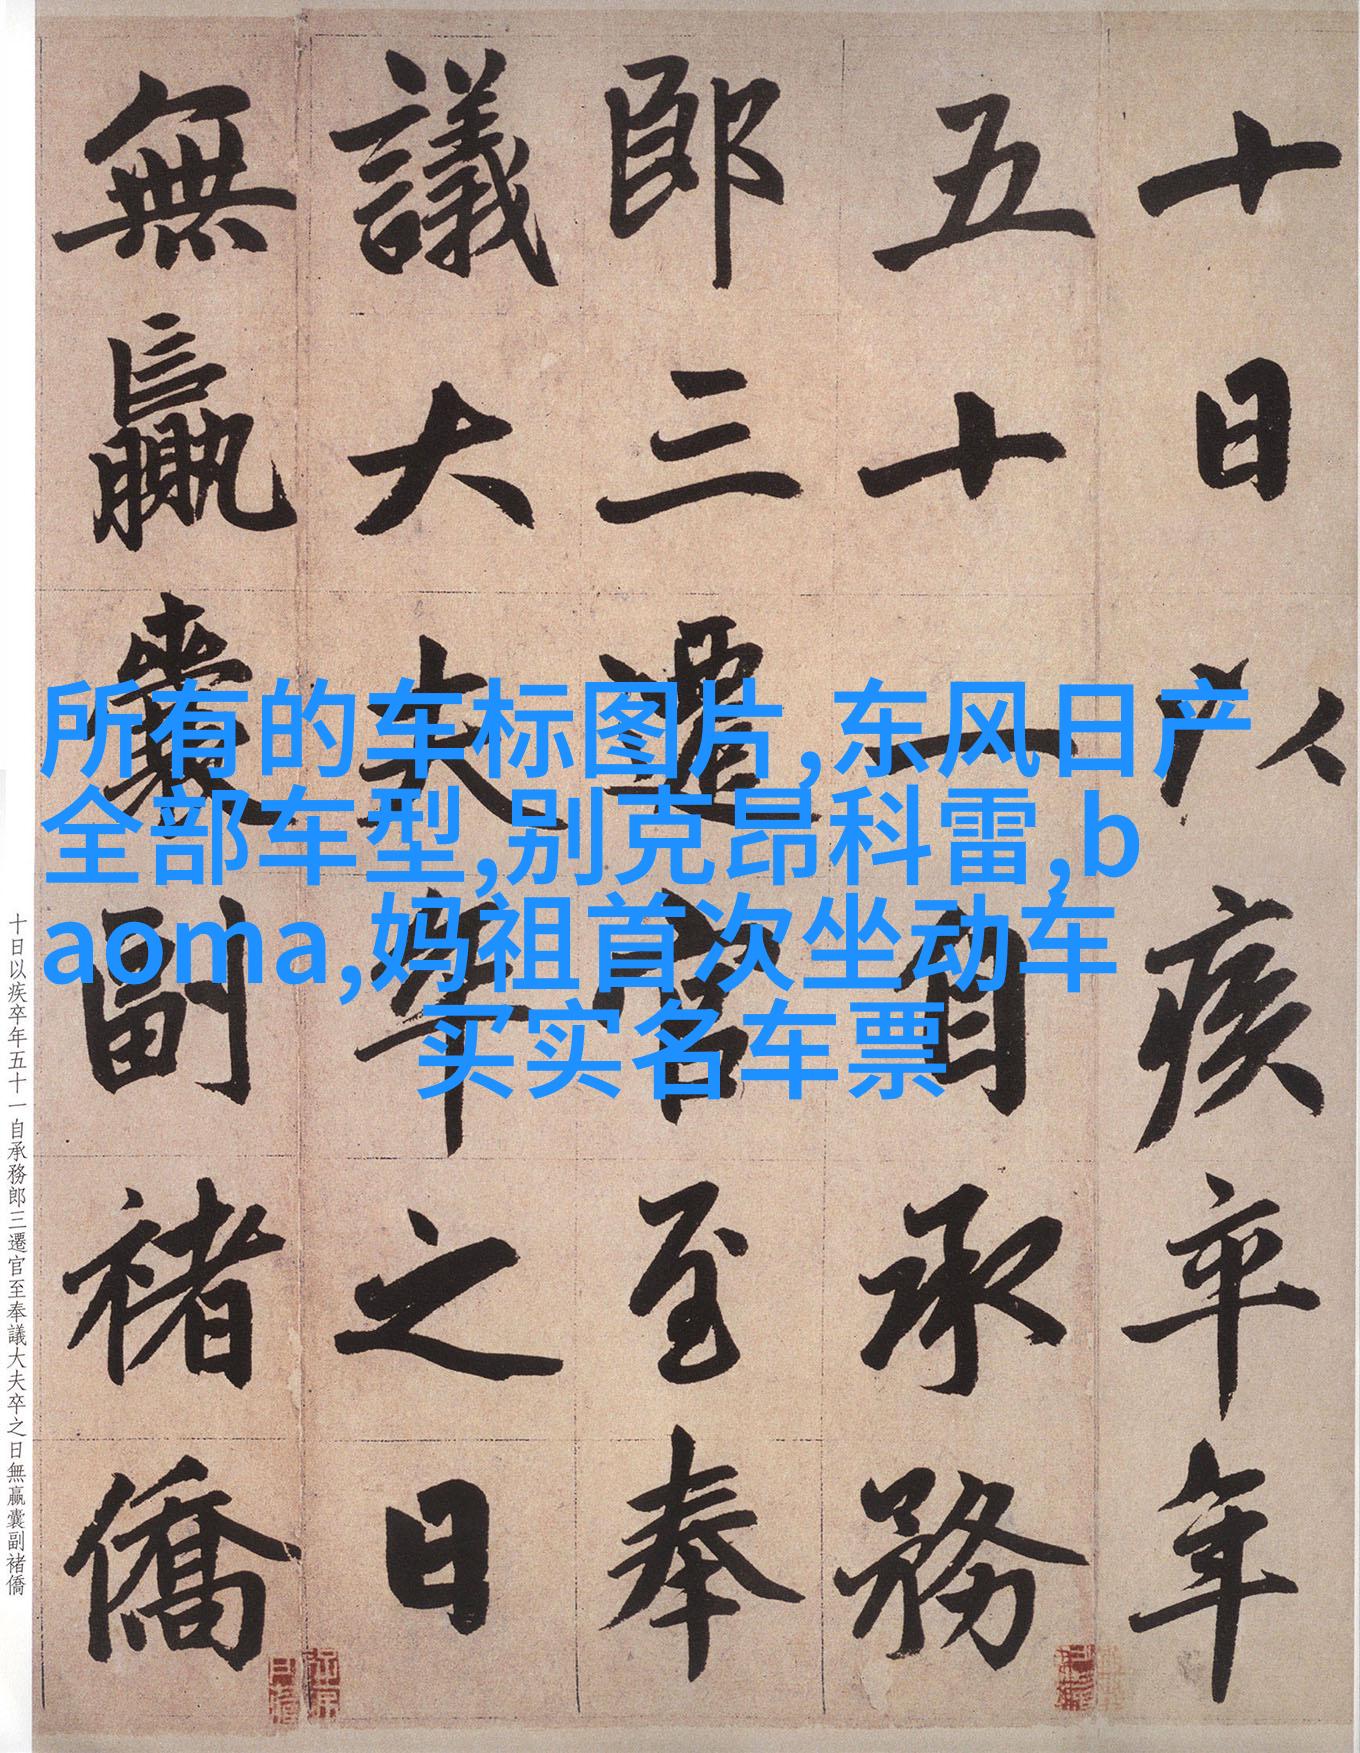 十日以疾卒年
五十一自承務
郎三遷官至奉
議大夫卒之日
無贏囊副褚僑
所有的车标图片,东风日产
全部车型,别克昂科雷,b
aoma,妈祖首次坐动车
买实名车票
十日以疾卒年五十一自承務郎三遷官至奉議大夫卒之日無贏囊副褚僑